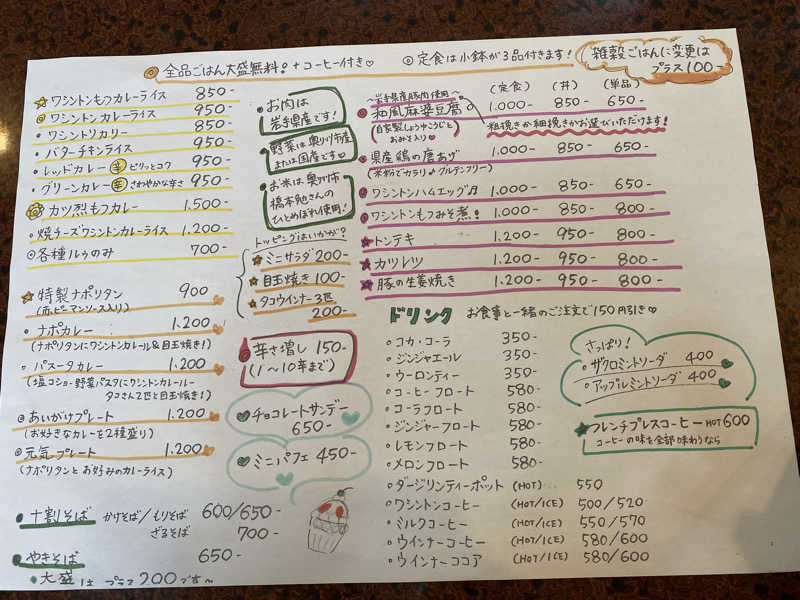 ◎全品ごはん大盛無料!+コーヒー付き♡
◎定食は小鉢が3品付きます!
雑穀ごはんに変更は
プラス100-
☆ワシントンもつカレーライス 850-
◎ワシントンカレーライス 950-
・ワシントリカリー 850-
・バターチキンライス 950-
・レッドカレー 辛 ピリッとコク 950-
・グリーンカレー 辛 さわやかな辛さ 950-
カツ烈もつカレー 1.500-
・焼チーズワシントンカレーライス 1.200-
◎各種ルゥのみ 700-
・お肉は
岩手県産です!
・野菜は奥州市産
または国産です♡
・お米は奥州市
橋本勉さんの
ひとめぼれ使用!
トッピングはいかが?
☆ミニサラダ 200-
★目玉焼き 100-
★タコウインナー3匹
200-
★特製ナポリタン 900
(赤ピーマンソース入り)
・ナポカレー 1.200
(ナポリタンにワシントンカレールー&目玉焼き!)
・パスータカレー 1.200
(塩コショー野菜パスタにワシントンカレールー
タコさん2匹と目玉焼き!)
◎あいがけプレート 1.200
(お好きなカレーを2種盛り)
◎元気プレート 1.200
(ナポリタンとお好みのカレーライス)
◎辛さ増し 150-
(1〜10辛まで)
チョコレートサンデー
650-
ミニパフェ 450-
・十割そば かけそば/もりそば 600/650-
ざるそば 700-
・やきそば 650-
・大盛は プラス200です〜
(定食) (丼) (単品)
〜岩手県産豚肉使用〜
◎和風麻婆豆腐 1.000- 850- 650-
(自家製しょうゆこうじと
おみそ入り♥)
粗挽きか細挽きかお選びいただけます!
◎県産鶏の唐あげ 1.000- 850- 650-
(米粉でカラリ♪グルテンフリー)
◎ワシントンハムエッグ♬ 1.000- 850- 650-
◎ワシントンもつみそ煮! 1.000- 850- 800-
★トンテキ 1.200- 950- 800-
★カツレツ 1.200- 950- 800-
★豚の生姜焼き 1.200- 950- 800-
ドリンク お食事と一緒のご注文で150円引き♡
・コカ・コーラ 350-
・ジンジャエール 350-
・ウーロンティー 350-
・コーヒーフロート 580-
・コーラフロート 580-
・ジンジャーフロート 580-
・レモンフロート 580-
・メロンフロート 580-
・ダージリンティーポット (HOT) 550
・ワシントンコーヒー (HOT/ICE) 500/520
・ミルクコーヒー (HOT/ICE) 550/570
・ウインナーコーヒー (HOT/ICE) 580/600
・ウインナーココア (HOT/ICE) 580/600
さっぱり!
・ザクロミントソーダ 400
・アップルミントソーダ 400
★フレンチプレスコーヒー HOT 600
コーヒーの味を全部味わうなら